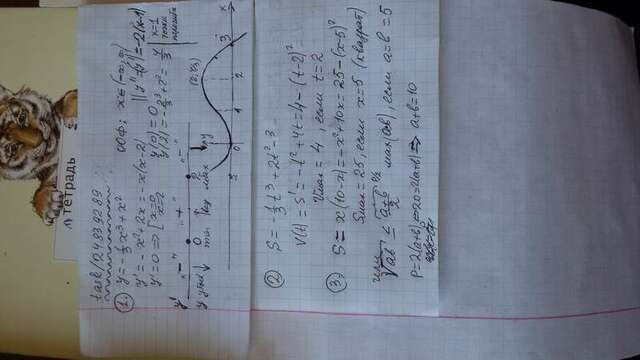 тетрадь
task/24839289
1. y = -1/3 x³ + x²   ООФ: x∈(-∞, ∞)
y' = -x² + 2x = -x(x-2)   || y'' = (y')' = -2(x-1)
y' = 0 ⇒ [x=0 x=2   y(0) = 0   | x=1
y(2) = -1/3·2³ + 2² = 4/3   точка
перегиба
y'   "–"   "+"   "–"
0   2
y убыв ↓ min ↑ воз max ↓
y (2; 4/3)
0 1 2 3 x
2 S = -1/3 t³ + 2t² - 3
V(t) = S' = -t² + 4t = 4 - (t-2)²
Vmax = 4, если t = 2
3. S = x(10-x) = -x² + 10x = 25 - (x-5)²
Smax = 25, если x = 5 (квадрат)
или
√ab ≤ (a+b)/2   max(ab), если a = b = 5
P = 2(a+b) ⇔ 20 = 2(a+b) ⇒ a+b = 10